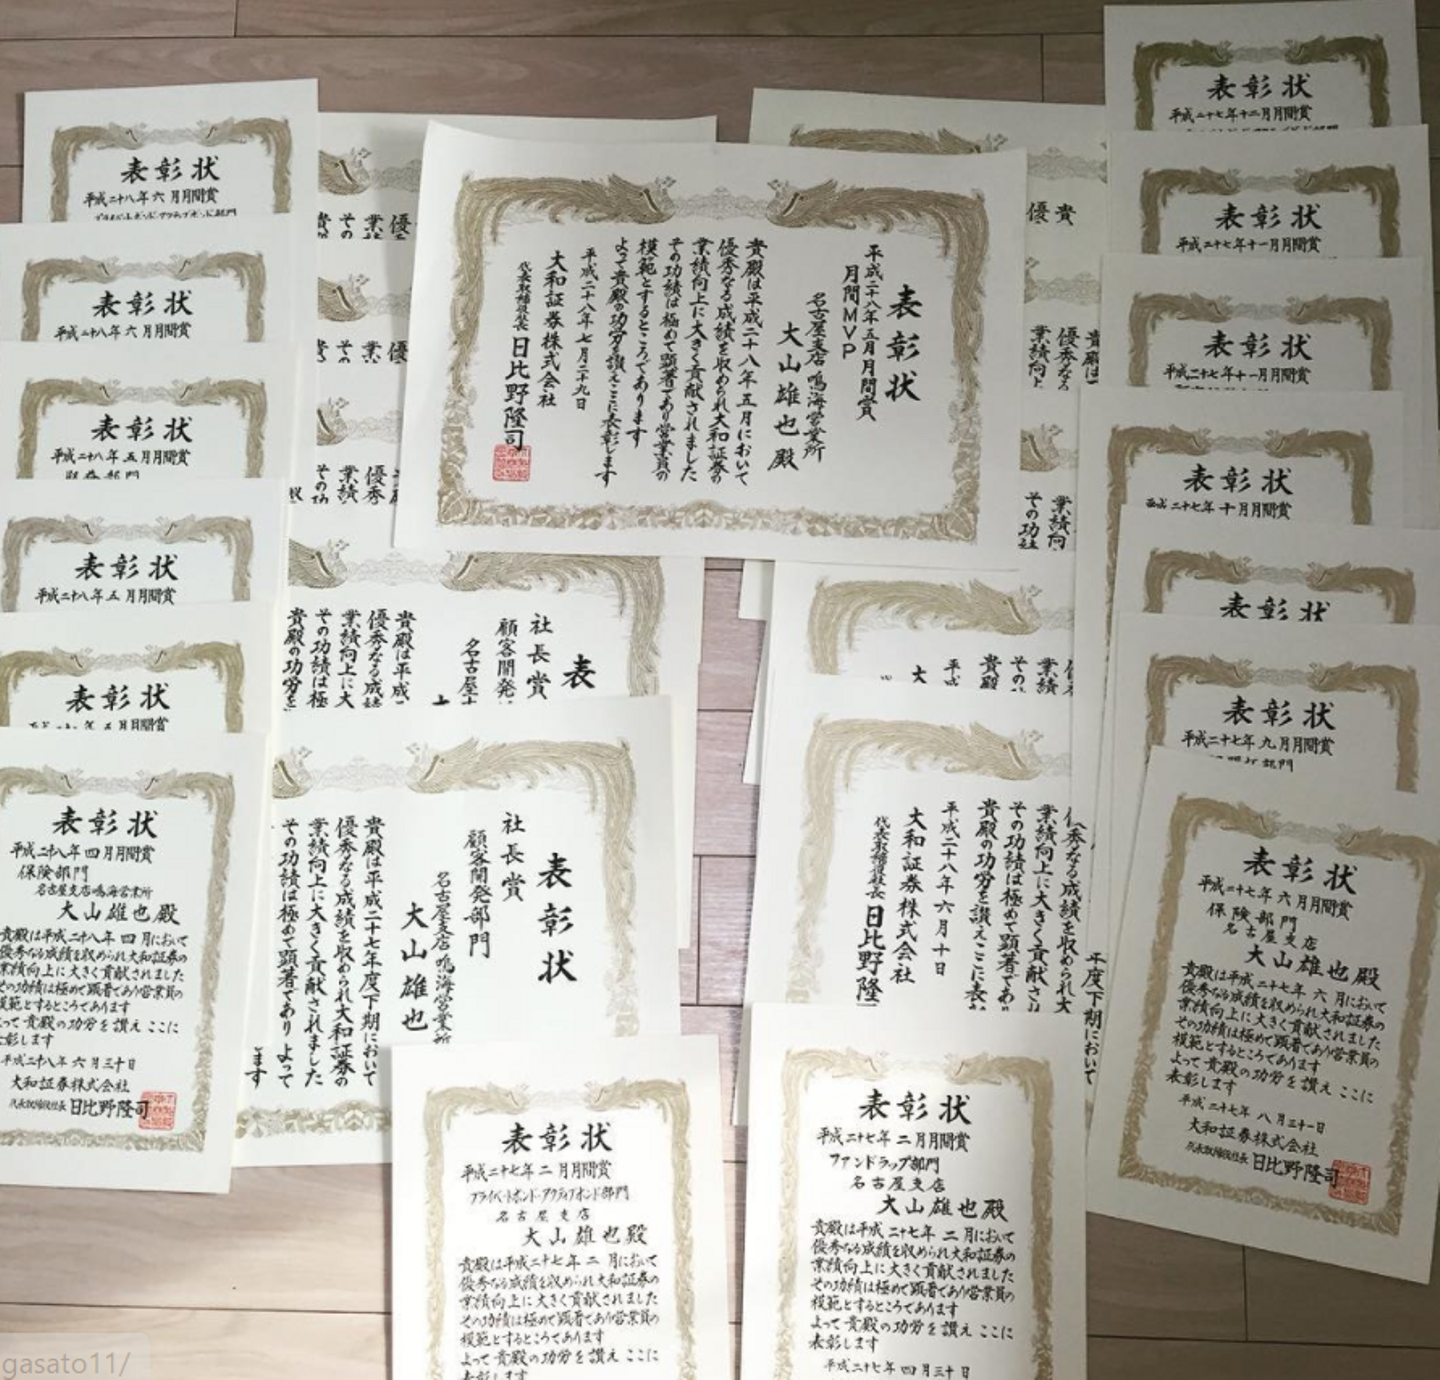 表彰状
平成二十八年六月月間賞
プライベートボンド・アクティブボンド部門
表彰状
平成二十八年六月月間賞
表彰状
平成二十八年五月月間賞
表彰状
平成二十八年五月月間賞
表彰状
表彰状
平成二十八年四月月間賞
保険部門
名古屋支店鳴海営業所
大山雄也殿
貴殿は平成二十八年四月において
優秀なる成績を収められ大和証券の
業績向上に大きく貢献されました
その功績は極めて顕著であり営業員の
模範とするところであります
よって貴殿の功労を讃えここに
表彰します
平成二十八年六月三十日
大和証券株式会社
代表取締役社長 日比野隆司
表彰状
平成二十八年五月月間賞
月間MVP
名古屋支店鳴海営業所
大山雄也殿
貴殿は平成二十八年五月において
優秀なる成績を収められ大和証券の
業績向上に大きく貢献されました
その功績は極めて顕著であり営業員の
模範とするところであります
よって貴殿の功労を讃えここに表彰します
平成二十八年七月二十九日
大和証券株式会社
代表取締役社長 日比野隆司
表
社長賞
顧客開発
名古屋
貴殿は平成
優秀なる成績
業績向上に大
その功績は極
貴殿の功労を
表彰状
社長賞
顧客開発部門
名古屋支店鳴海営業所
大山雄也
貴殿は平成二十七年度下期において
優秀なる成績を収められ大和証券の
業績向上に大きく貢献されました
その功績は極めて顕著でありよって
ます
年度下期において
優秀なる成績を収められ大
業績向上に大きく貢献され
その功績は極めて顕著であり
貴殿の功労を讃えここに表
平成二十八年六月十日
大和証券株式会社
代表取締役社長 日比野隆
表彰状
平成二十七年二月月間賞
プライベートボンド・アクティブボンド部門
名古屋支店
大山雄也殿
貴殿は平成二十七年二月において
優秀なる成績を収められ大和証券の
業績向上に大きく貢献されました
その功績は極めて顕著であり営業員の
模範とするところであります
よって貴殿の功労を讃えここに
表彰します
表彰状
平成二十七年二月月間賞
ファンドラップ部門
名古屋支店
大山雄也殿
貴殿は平成二十七年二月において
優秀なる成績を収められ大和証券の
業績向上に大きく貢献されました
その功績は極めて顕著であり営業員の
模範とするところであります
よって貴殿の功労を讃えここに
表彰します
平成二十七年四月三十日
表彰状
平成二十七年十二月月間賞
表彰状
平成二十七年十一月月間賞
表彰状
平成二十七年十一月月間賞
表彰状
平成二十七年十月月間賞
表彰状
表彰状
平成二十七年九月月間賞
表彰状
平成二十七年六月月間賞
保険部門
名古屋支店
大山雄也殿
貴殿は平成二十七年六月において
優秀なる成績を収められ大和証券の
業績向上に大きく貢献されました
その功績は極めて顕著であり営業員の
模範とするところであります
よって貴殿の功労を讃えここに
表彰します
平成二十七年八月三十一日
大和証券株式会社
代表取締役社長 日比野隆司
gasato11/